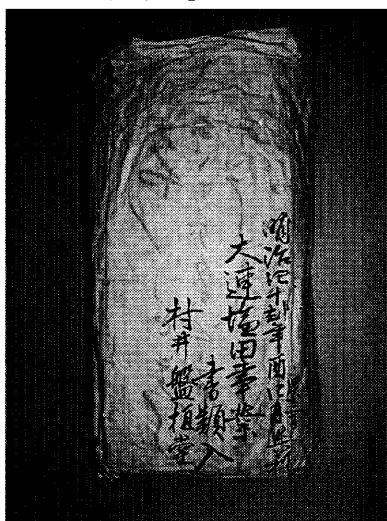 明治四十五年
大連塩田事業
書類入
村井盤桓堂